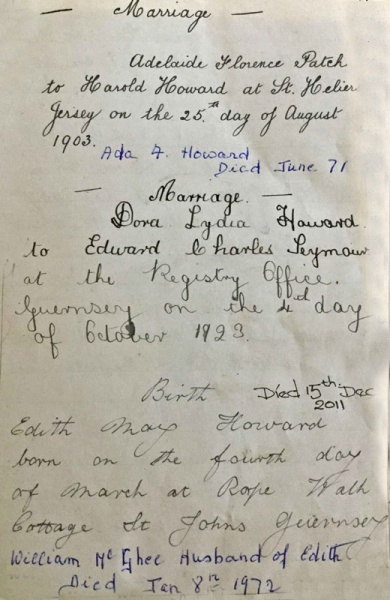 — Marriage —
Adelaide Florence Patch
to Harold Howard at St. Helier
Jersey on the 25.th day of August
1903.
Ada F. Howard
Died June 71
— Marriage. —
Dora Lydia Howard
to Edward Charles Seymour
at the Registry Office.
Guernsey on the 4d day
of October 1923.
Birth Died 15th Dec
2011
Edith May Howard
born on the fourth day
of March at Rope Walk
Cottage St Johns Guernsey
William Mc Ghee Husband of Edith
Died Jan 8th 1972